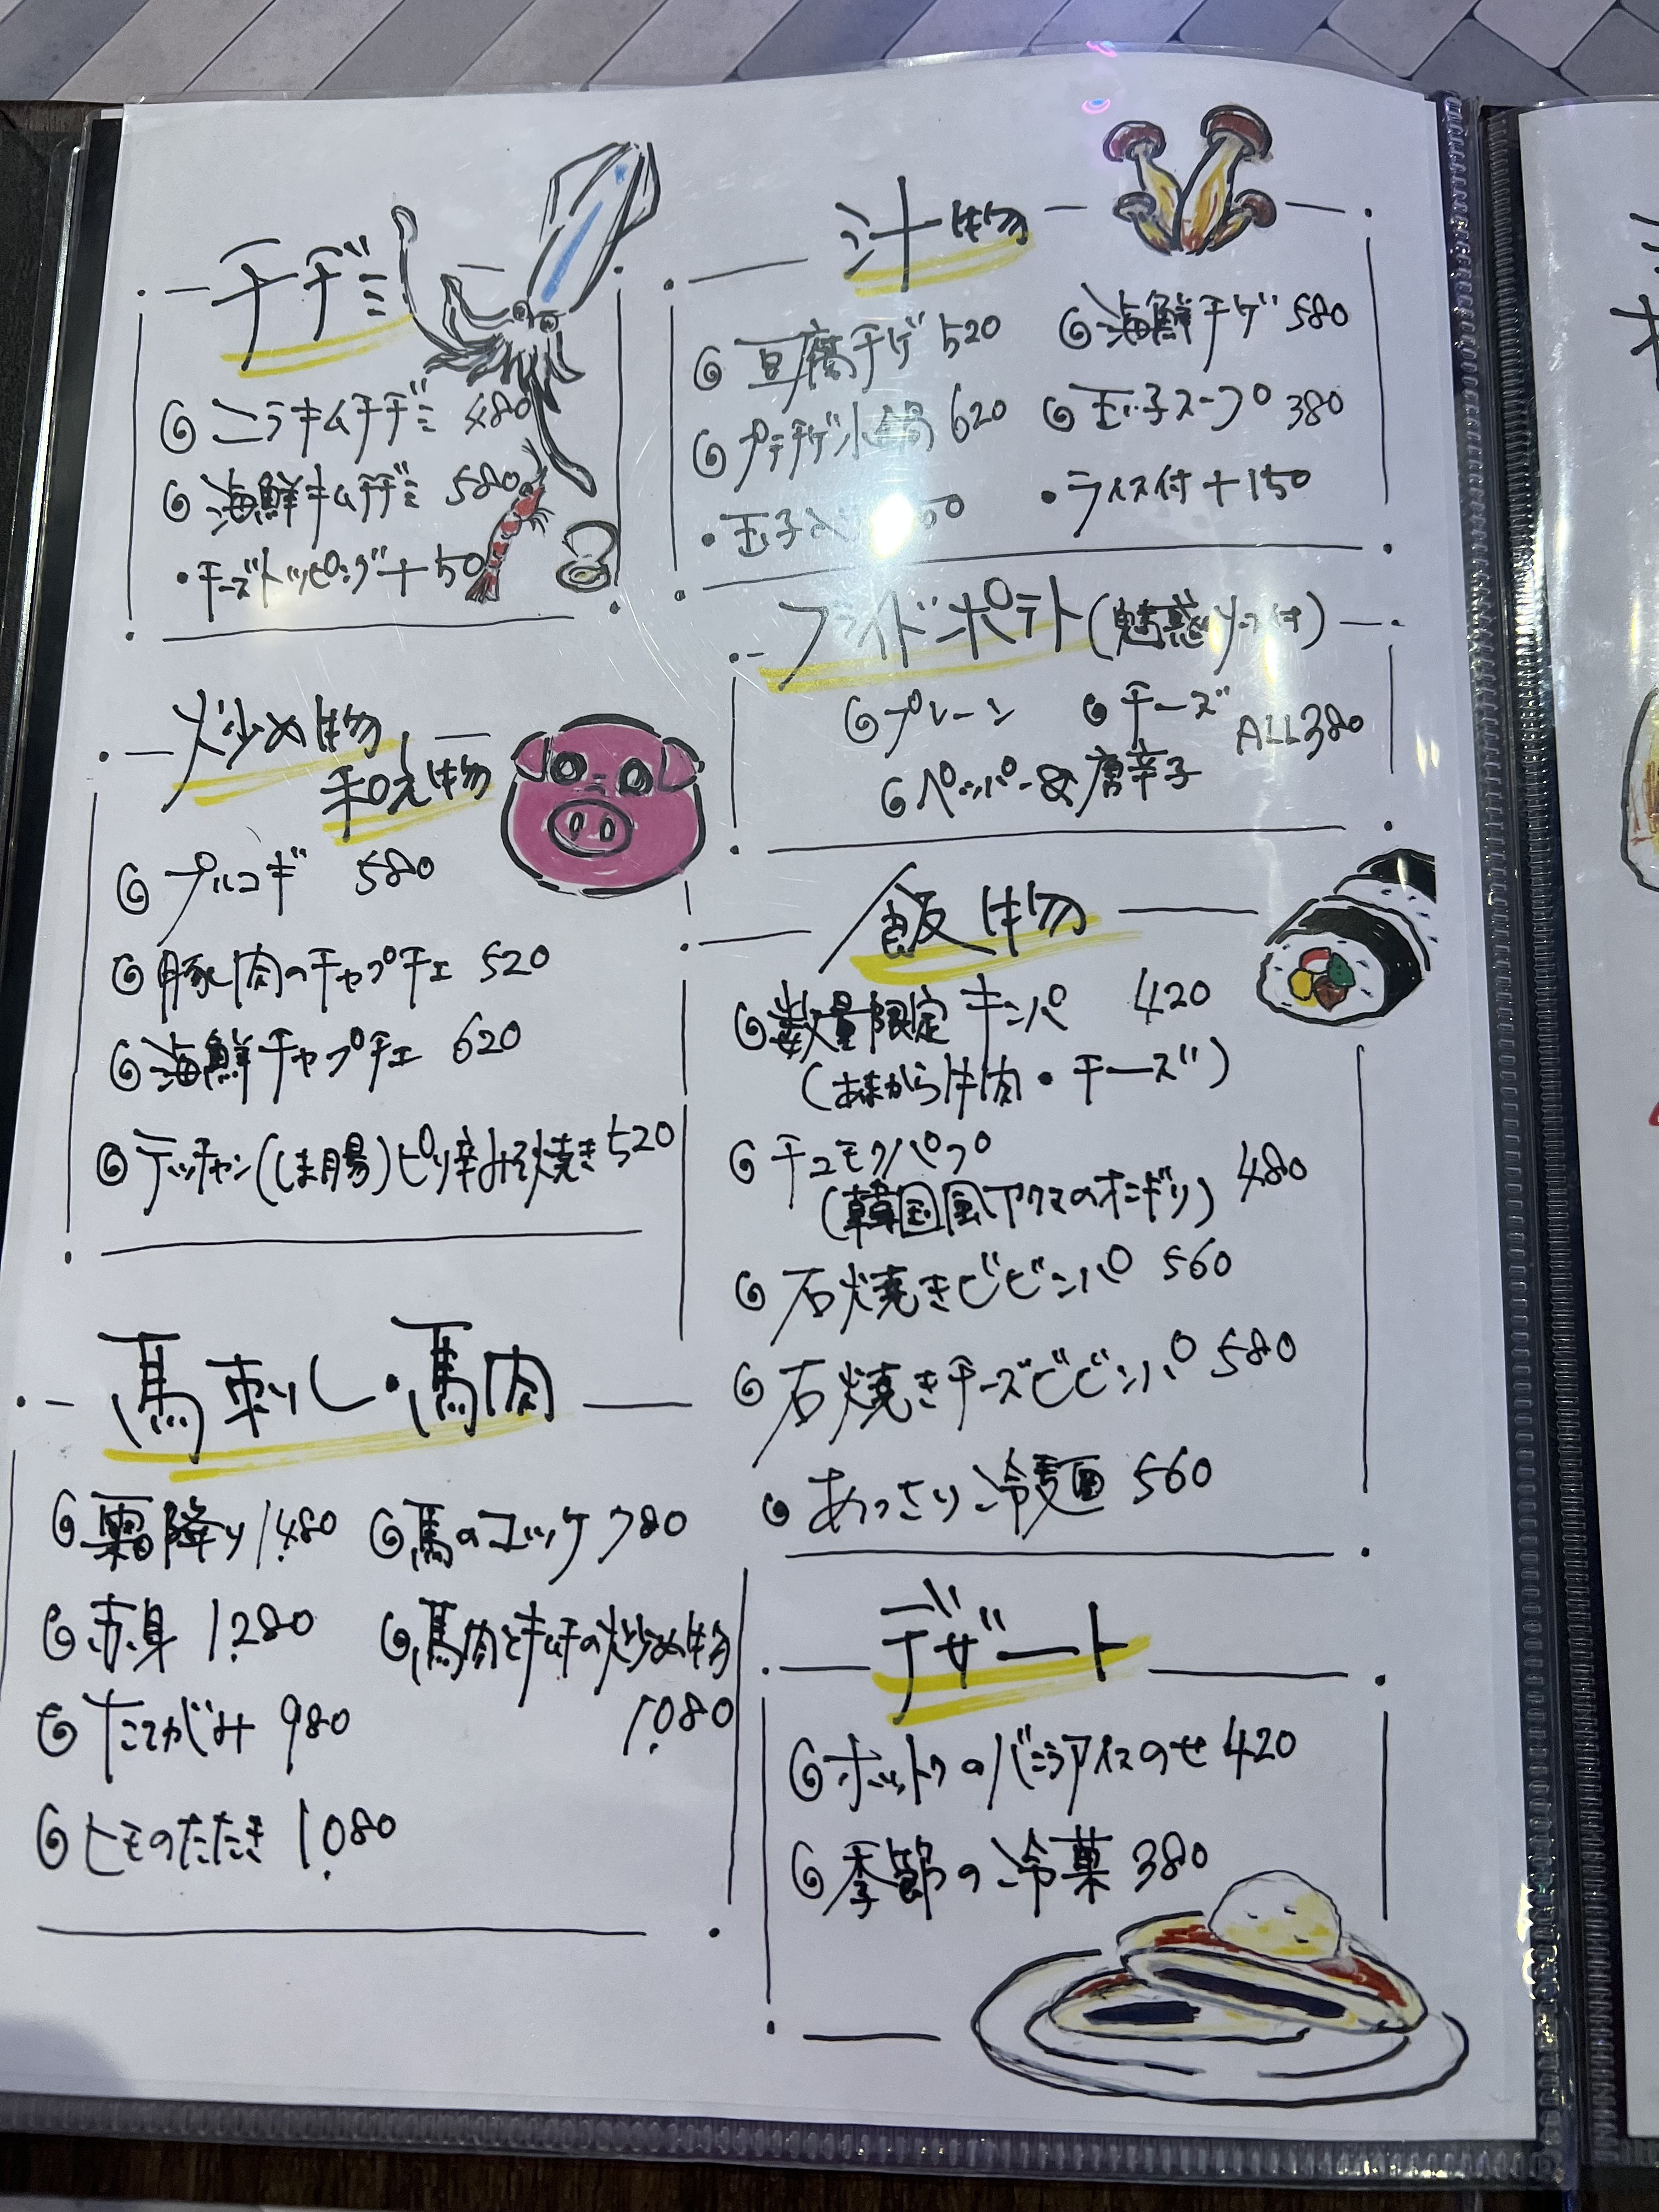 チヂミ
ニラキムチヂミ 480
海鮮キムチヂミ 580
・チーズトッピング +50
炒め物
和え物
プルコギ 580
豚肉のチャプチェ 520
海鮮チャプチェ 620
テッチャン(しま腸)ピリ辛みそ焼き 520
馬刺し・馬肉
霜降り 1,480
馬のユッケ 780
赤身 1,280
馬肉とキムチの炒め物
1,080
たてがみ 980
ヒモのたたき 1,080
汁物
豆腐チゲ 520
海鮮チゲ 580
プチチゲ小鍋 620
玉子スープ 380
・玉子入
・ライス付 +150
フライドポテト(魅惑ソース付)
プレーン
チーズ
ALL380
ペッパー&唐辛子
飯物
数量限定 キンパ 420
(あまから牛肉・チーズ)
チュモクパプ
(韓国風アクマのオニギリ) 480
石焼きビビンパ 560
石焼きチーズビビンパ 580
あっさり冷麺 560
デザート
ホットクのバニラアイスのせ 420
季節の冷菓 380